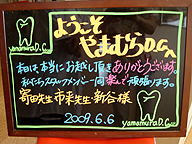 ようこそ
やまむらD.Cへ
本日は本当にお越し頂きありがとうございます。
私たちスタッフメンバー一同楽しんで頑張ります。
寄田先生 市来先生 新谷様
2009.6.6
yamamura D.C
yamamura D.C